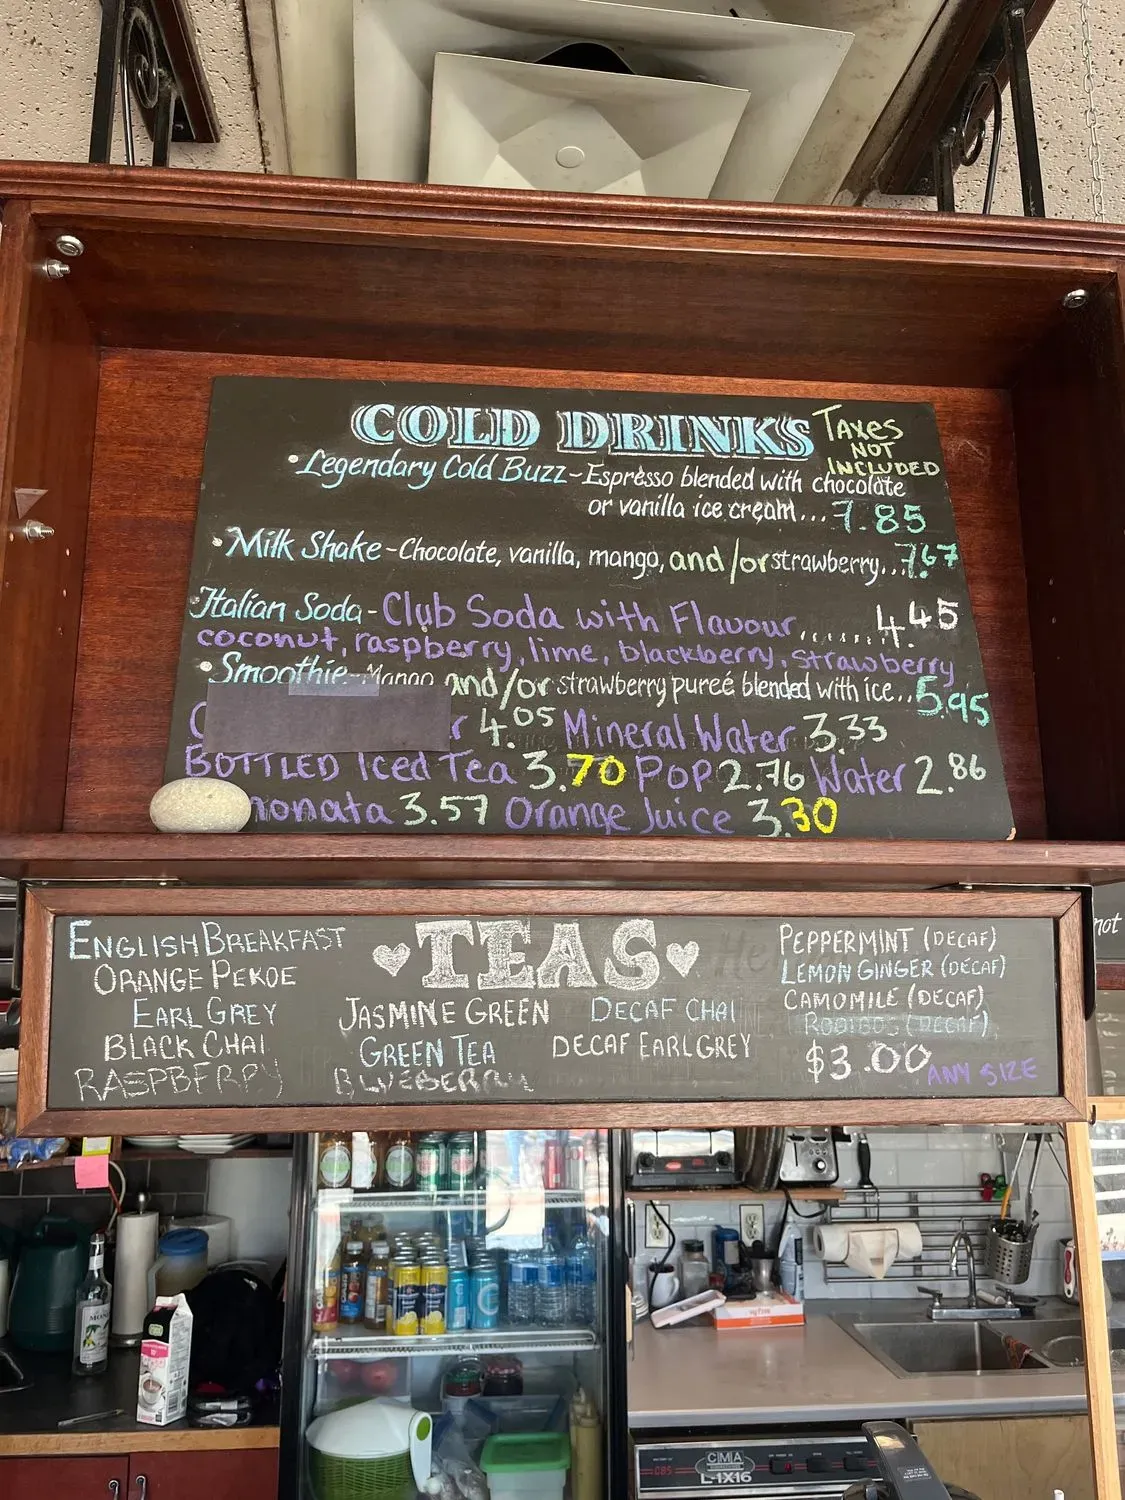 COLD DRINKS
TAXES
NOT
INCLUDED
•Legendary Cold Buzz-Espresso blended with chocolate
or vanilla ice cream...7.85
•Milk Shake-Chocolate, vanilla, mango, and/or strawberry...7.67
Italian Soda-Club Soda with Flavour.......4.45
coconut, raspberry, lime, blackberry, strawberry
•Smoothie-Mango and/or strawberry pureé blended with ice...5.95
4.05 Mineral Water 3.33
BOTTLED Iced Tea 3.70 Pop 2.76 Water 2.86
nonata 3.57 Orange Juice 3.30
TEAS
ENGLISH BREAKFAST
ORANGE PEKOE
EARL GREY
BLACK CHAI
RASPBERRY
JASMINE GREEN
GREEN TEA
BLUEBERRY
DECAF CHAI
DECAF EARL GREY
PEPPERMINT (DECAF)
LEMON GINGER (DECAF)
CAMOMILE (DECAF)
ROOIBOS (DECAF)
$3.00 ANY SIZE
not
CMA
L-1X16